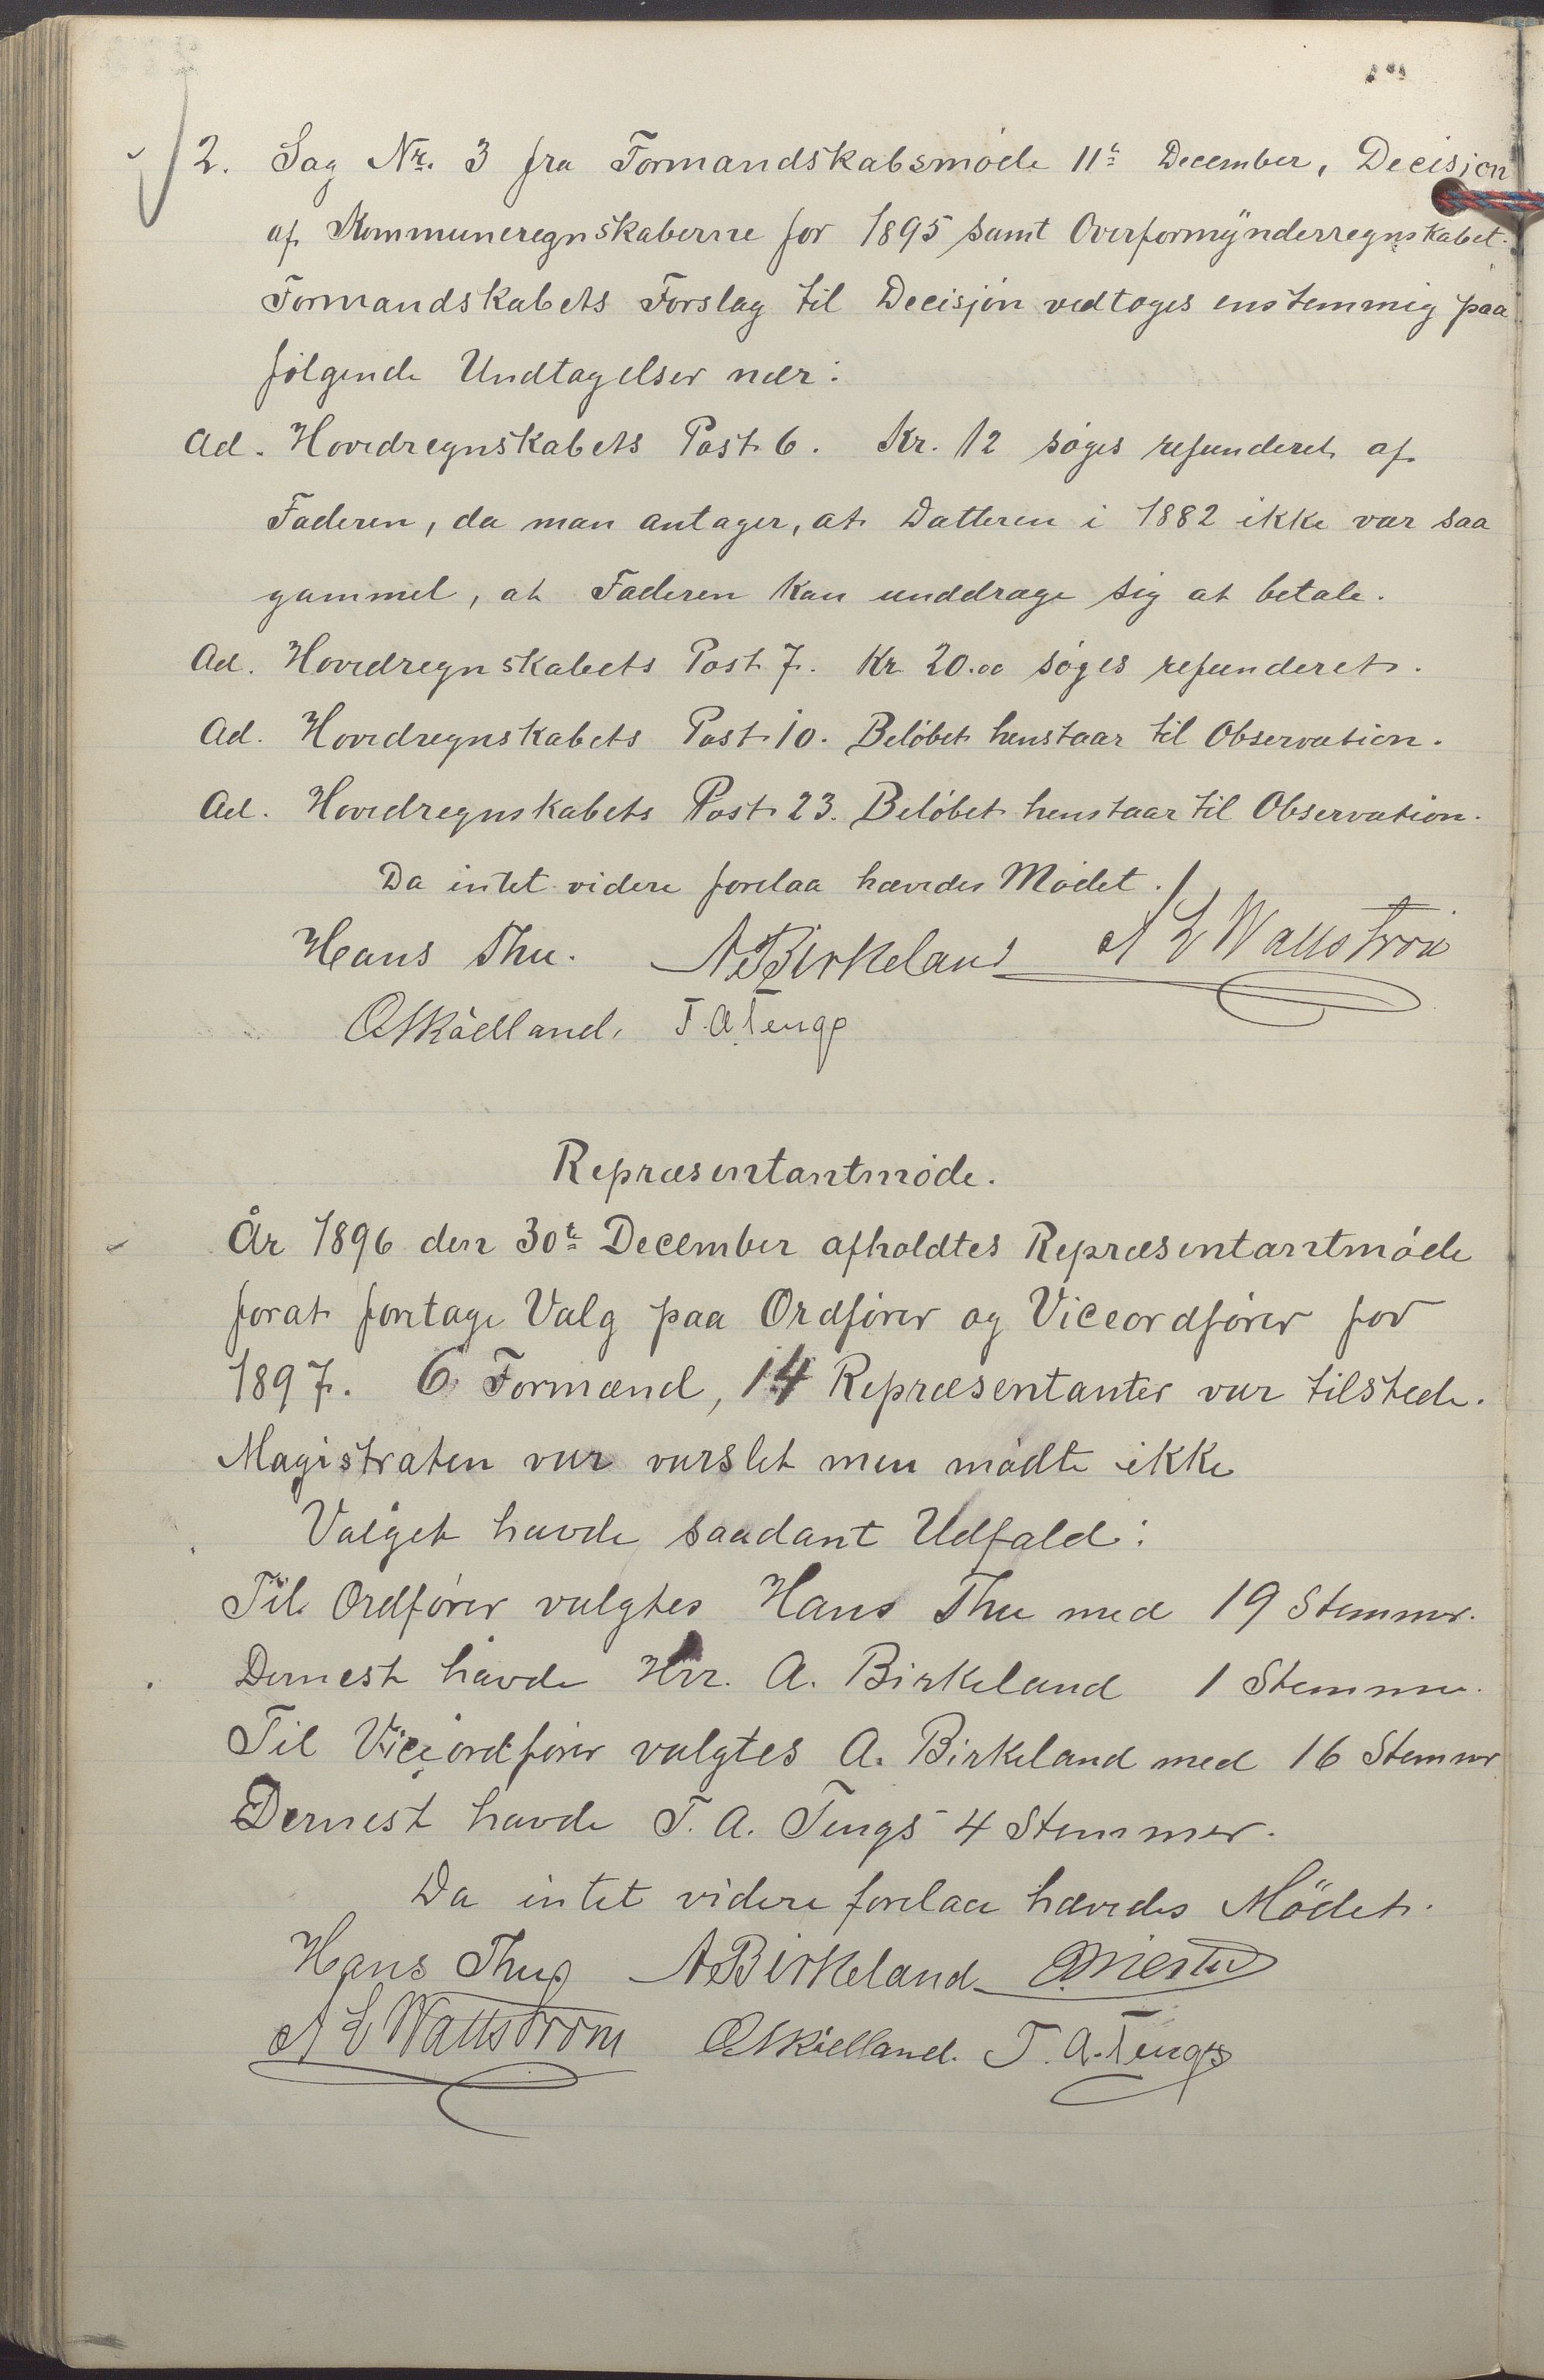 2. Sag Nr. 3 fra Formandskabsmøde 11te December, Decisjon
af Kommuneregnskaberne for 1895 samt Overformynderregnskabet.
Formandskabets Forslag til Decisjon vedtoges enstemmig paa
følgende Undtagelser nær:
Ad. Hovedregnskabets Post 6. Kr. 12 søges refunderet af
Faderen, da man antager, at Datteren i 1882 ikke var saa
gammel, at Faderen kan unddrage sig at betale.
Ad. Hovedregnskabets Post 7. Kr 20.00 søges refunderet.
Ad. Hovedregnskabets Post 10. Beløbet henstaar til Observation.
Ad. Hovedregnskabets Post 23. Beløbet henstaar til Observation.
Da intet videre forelaa hævedes Mødet.
Hans Thu. A Birkeland A L Wattstrøm
O Skådland. T. A. Tengs
Repræsentantmøde.
År 1896 den 30te December afholdtes Repræsentantmøde
forat foretage Valg paa Ordfører og Viceordfører for
1897. 6 Formænd, 14 Repræsentanter var tilstede.
Magistraten var varslet men mødte ikke
Valget havde saadant Udfald:
Til Ordfører valgtes Hans Thu med 19 Stemmer.
Dernest havde Hr. A. Birkeland 1 Stemme.
Til Viceordfører valgtes A. Birkeland med 16 Stemmer
Dernest havde T. A. Tengs 4 Stemmer.
Da intet videre forelaa hævedes Mødet.
Hans Thu A Birkeland
A L Wattstrøm O Skådland. T. A. Tengs